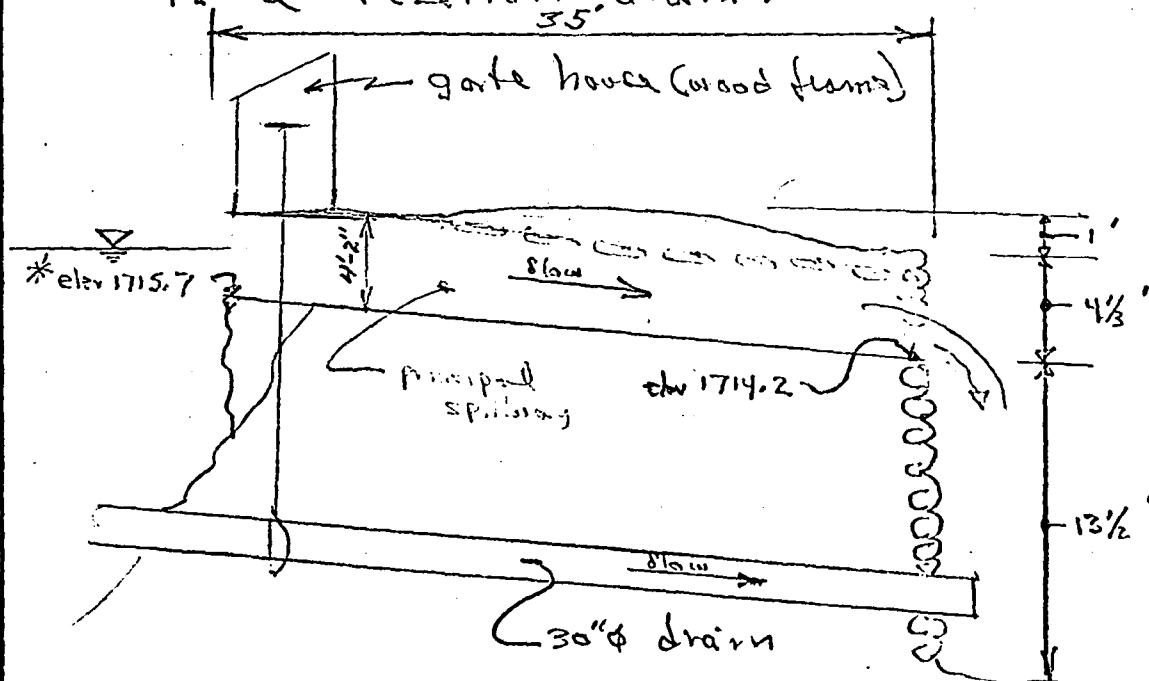 35'
gate house (wood frame)
1'
4'-2"
* elev 1715.7
flow
4⅓'
principal
spillway
elev 1714.2
13½'
flow
30"φ drain